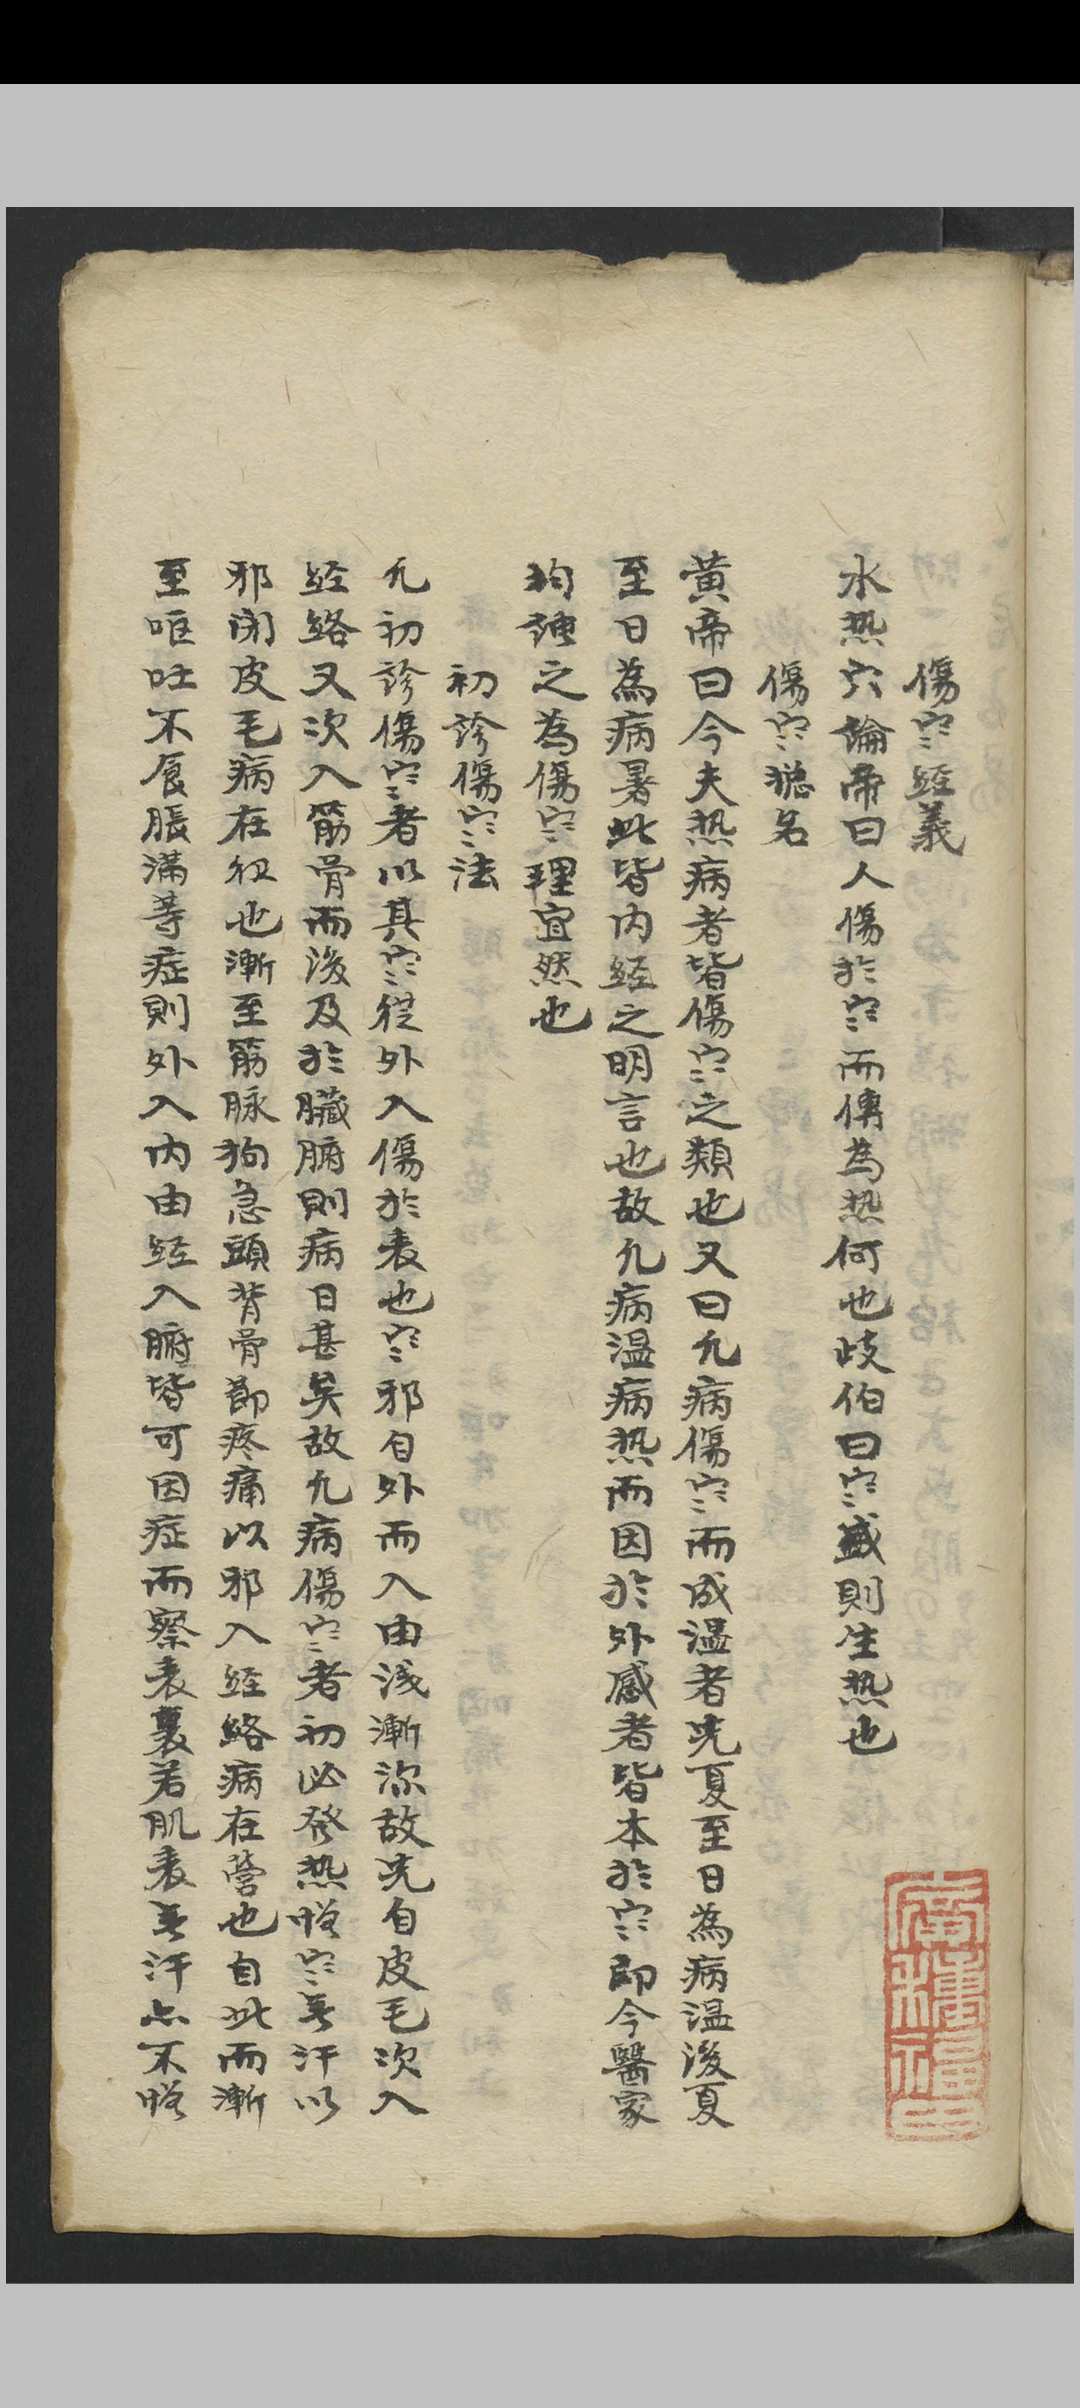 傷寒経義
水热穴論帝曰人傷於寒而傳為热何也歧伯曰寒盛則生热也
傷寒揔名
黄帝曰今夫热病者皆傷寒之類也又曰凢病傷寒而成温者先夏至日為病温後夏
至日為病暑此皆内経之明言也故凢病温病热而因於外感者皆本於寒即今醫家
拘䅵之為傷寒理宜然也
初診傷寒法
凢初診傷寒者以其寒従外入傷於表也寒邪自外而入由浅漸深故先自皮毛次入
経絡又次入筋骨而後及於臓腑則病日甚矣故凢病傷寒者初必發热憎寒无汗以
邪闭皮毛病在衛也漸至筋脉拘急頭背骨節疼痛以邪入経絡病在營也自此而漸
至嘔吐不食脹滿等症則外入内由経入腑皆可因症而察表裏若肌表无汗亦不憎